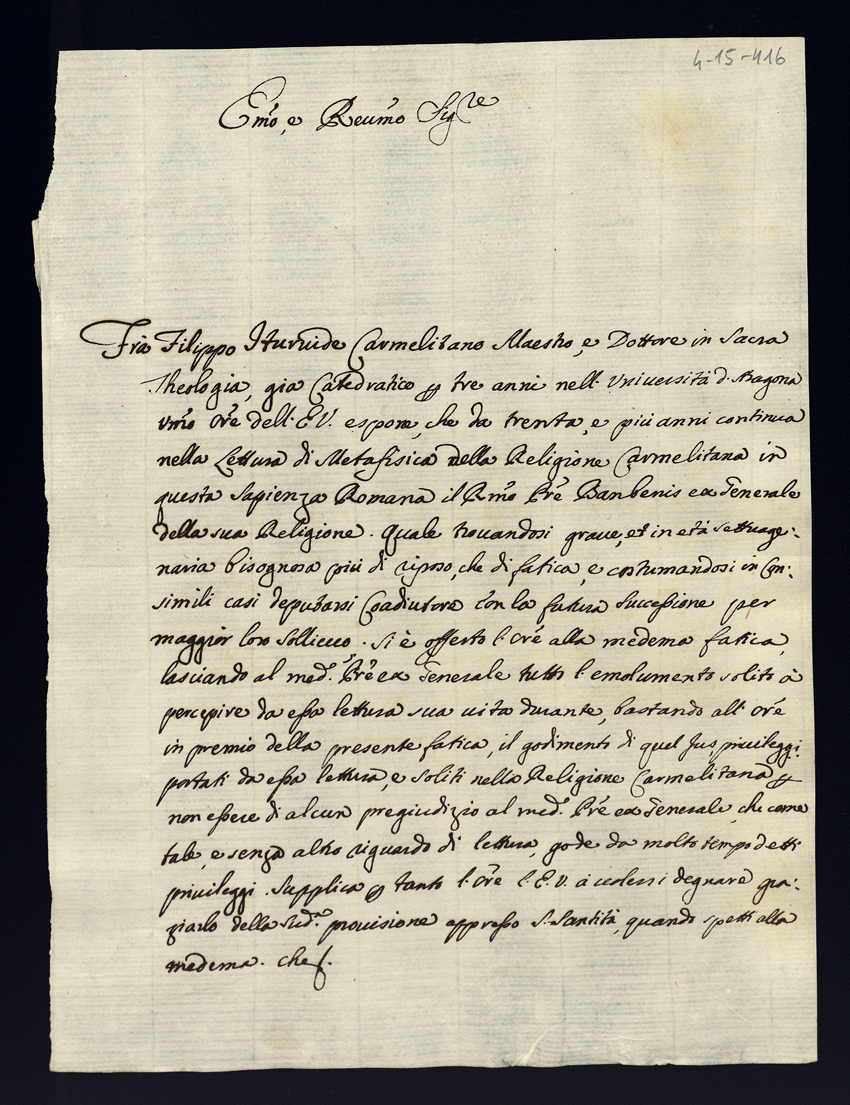 4-15-416
Emo, e Reumo Sigre
Fra Filippo Iturvide Carmelitano Maestro, e Dottore in Sacra
Theologia, gia Catedratico p tre anni nell. Università d. Aragona
umo Ore dell. E.V. espone, che da trenta, e più anni continua
nella Lettura di Metafisica della Religione Carmelitana in
questa Sapienza Romana il Rmo Pre Banbenis ex Generale
della sua Religione. Quale trouandosi graue, et in età settuage:
naria bisognosa più di riposo, che di fatica, e costumandosi in Con:
simili casi deputarsi Coadiutore con la futura Successione per
maggior loro Sollievo. Si è offerto l. Ore alla medema fatica,
lasciando al med.o Pre ex Generale tutto l. emolumento solito à
percepire da essa lettura sua uita durante, bastando all. Ore
in premio della presente fatica, il godimento di quel Jus, priuileggi
portati da essa lettura, e soliti nella Religione Carmelitana p
non essere di alcun pregiudizio al med.o Pre ex Generale, che come
tale, e senza altro riguardo di lettura, gode da molto tempo detti
priuileggi. Supplica p tanto l. Ore l. E.V. à uolersi degnare gra:
ziarlo della Sud.a prouisione appresso S. Santità, quando spetti alla
medema. Che